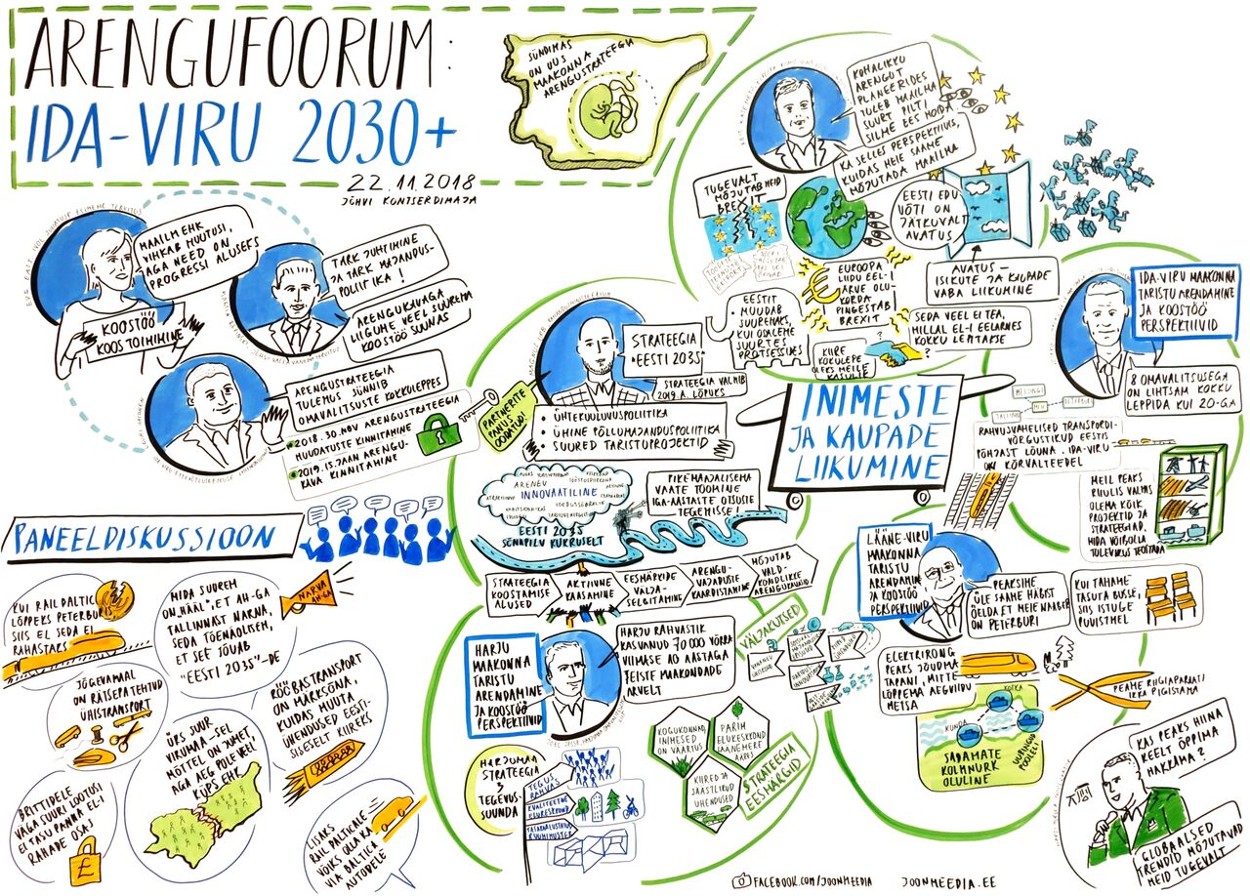 ARENGUFOORUM:
IDA-VIRU 2030+
22.11.2018
JÕHVI KONTSERDIMAJA
SÜNDIMAS
ON UUS
MAAKONNA
ARENGUSTRATEEGIA
MAAILM EHK
VIHKAB MUUTUSI,
AGA NEED ON
PROGRESSI ALUSEKS
KOOSTÖÖ
KOOS TOIMIMINE
TARK JUHTIMINE
JA TARK MAJANDUS-
POLIITIKA!
ARENGUKAVAGA
LIIGUME VEEL SUUREMA
KOOSTÖÖ SUUNAS
ARENGUSTRATEEGIA
TULEMUS SÜNNIB
OMAVALITSUSTE KOKKULEPPES
2018. 30. NOV ARENGUSTRATEEGIA
MUUDATUSTE KINNITAMINE
2019. 15. JAAN ARENGU-
KAVA KINNITAMINE
KOHALIKKU
ARENGUT
PLANEERIDES
TULEB MAAILMA
SUURT PILTI
SILME EES HOIDA
KA SELLES PERSPEKTIIVIS,
KUIDAS MEIE SAAME
MÕJUTADA MAAILMA
TUGEVALT
MÕJUTAB MEID
BREXIT
EESTI EDU
VÕTI ON
JÄTKUVALT
AVATUS
AVATUS –
ISIKUTE JA KAUPADE
VABA LIIKUMINE
EUROOPA
LIIDU EEL-
ARVE OLU-
KORDA
PINGESTAB
BREXIT
EESTIT
MUUDAB
SUUREMAKS,
KUI OSALEME
SUURTES
PROTSESSIDES
KIIRE
KOKULEPE
OLEKS MEILE
KASULIK
SEDA VEEL EI TEA,
MILLAL EL-I EELARVES
KOKKU LEPITAKSE
?
STRATEEGIA
"EESTI 2035"
STRATEEGIA VALMIB
2019. A. LÕPUKS
PARTNERITE
PANUS
OODATUD!
ÜHTEKUULUVUSPOLIITIKA
ÜHINE PÕLLUMAJANDUSPOLIITIKA
SUURED TARISTUPROJEKTID
ARENEV
INNOVAATILINE
EESTI 2035
SÕNAPILV KUKRUSELT
PIKEMAAJALISEMA
VAATE TOOMINE
IGA-AASTATE OTSUSTE
TEGEMISSE!
STRATEEGIA
KOOSTAMISE
ALUSED
AKTIIVNE
KAASAMINE
EESMÄRKIDE
VÄLJA-
SELGITAMINE
ARENGU-
VAJADUSTE
KAARDISTAMINE
MÕJUTAB
VALD-
KONDLIKKE
ARENGUKAVASID
INIMESTE
JA KAUPADE
LIIKUMINE
IDA-VIRU MAAKONNA
TARISTU ARENDAMINE
JA KOOSTÖÖ
PERSPEKTIIVID
8 OMAVALITSUSEGA
ON LIHTSAM KOKKU
LEPPIDA KUI 20-GA
HELSINGI
TALLINN
RAHVUSVAHELISED TRANSPORDI-
VÕRGUSTIKUD EESTIS
PÕHJAST LÕUNA. IDA-VIRU
ON KÕRVALTEEDEL
MEIL PEAKS
RIIULIS VALMIS
OLEMA KÕIK
PROJEKTID JA
STRATEEGIAD,
MIDA VÕIB OLLA
TULEVIKUS TEOSTADA
LÄÄNE-VIRU
MAAKONNA
TARISTU
ARENDAMINE
JA KOOSTÖÖ
PERSPEKTIIVID
PEAKSIME
ÜLE SAAMA HÄBIST
ÖELDA ET MEIE NAABER
ON PETERBURI
KUI TAHAME
TASUTA BUSSE,
SIIS ISTUGE
PUUISTMEL
ELEKTRIRONG
PEAKS JÕUDMA
TAPANI, MITTE
LÕPPEMA AEGVIIDU
METSA
KUNDA
KOTKA
SADAMATE
KOLMNURK
OLULINE
PEAME RIIGIAPARAATI
IKKA PIGISTAMA
KAS PEAKS HIINA
KEELT ÕPPIMA
HAKKAMA?
GLOBAALSED
TRENDID MÕJUTAVAD
MEID TUGEVALT
HARJU
MAAKONNA
TARISTU
ARENDAMINE
JA KOOSTÖÖ
PERSPEKTIIVID
HARJU RAHVASTIK
KASVANUD 70 000 VÕRRA
VIIMASE 10 AASTAGA
TEISTE MAAKONDADE
ARVELT
VÄLJAKUTSED
KOGUKONNAD,
INIMESED
ON VÄÄRTUS
PARIM
ELUKESKKOND
LÄÄNEMERE
ÄÄRES
KIIRED JA
SÄÄSTLIKUD
ÜHENDUSED
STRATEEGIA
EESMÄRGID
HARJUMAA
STRATEEGIA
3
TEGEVUS-
SUUNDA
TEGUS
RAHVAS
KVALITEETNE
ELUKESKKOND
PANEELDISKUSSIOON
KUI RAIL BALTIC
LÕPPEKS PETERBURIS
SIIS EL SEDA EI
RAHASTAKS
MIDA SUUREM
ON "HÄÄL", ET 4H-GA
TALLINNAST NARVA,
SEDA TÕENÄOLISEM,
ET SEE JÕUAB
"EESTI 2035"-DE
NARVA
4H-GA
JÕGEVAMAAL
ON RÄTSEPATEHTUD
ÜHISTRANSPORT
RÖÖBASTRANSPORT
ON MÄRKSÕNA,
KUIDAS MUUTA
ÜHENDUSED EESTI-
SISESELT KIIREKS
ÜKS SUUR
VIRUMAA -SEL
MÕTTEL ON JUMET,
AGA AEG POLE VEEL
KÜPS EHK
BRITTIDELE
VÄGA SUURI LOOTUSI
EI TASU PANNA EL-I
RAHADE OSAS
£
LISAKS
RAIL BALTICALE
VÕIKS ÜLLATA
VIA BALTICA
AUTODELE
FACEBOOK.COM/JOONMEEDIA
JOONMEEDIA.EE